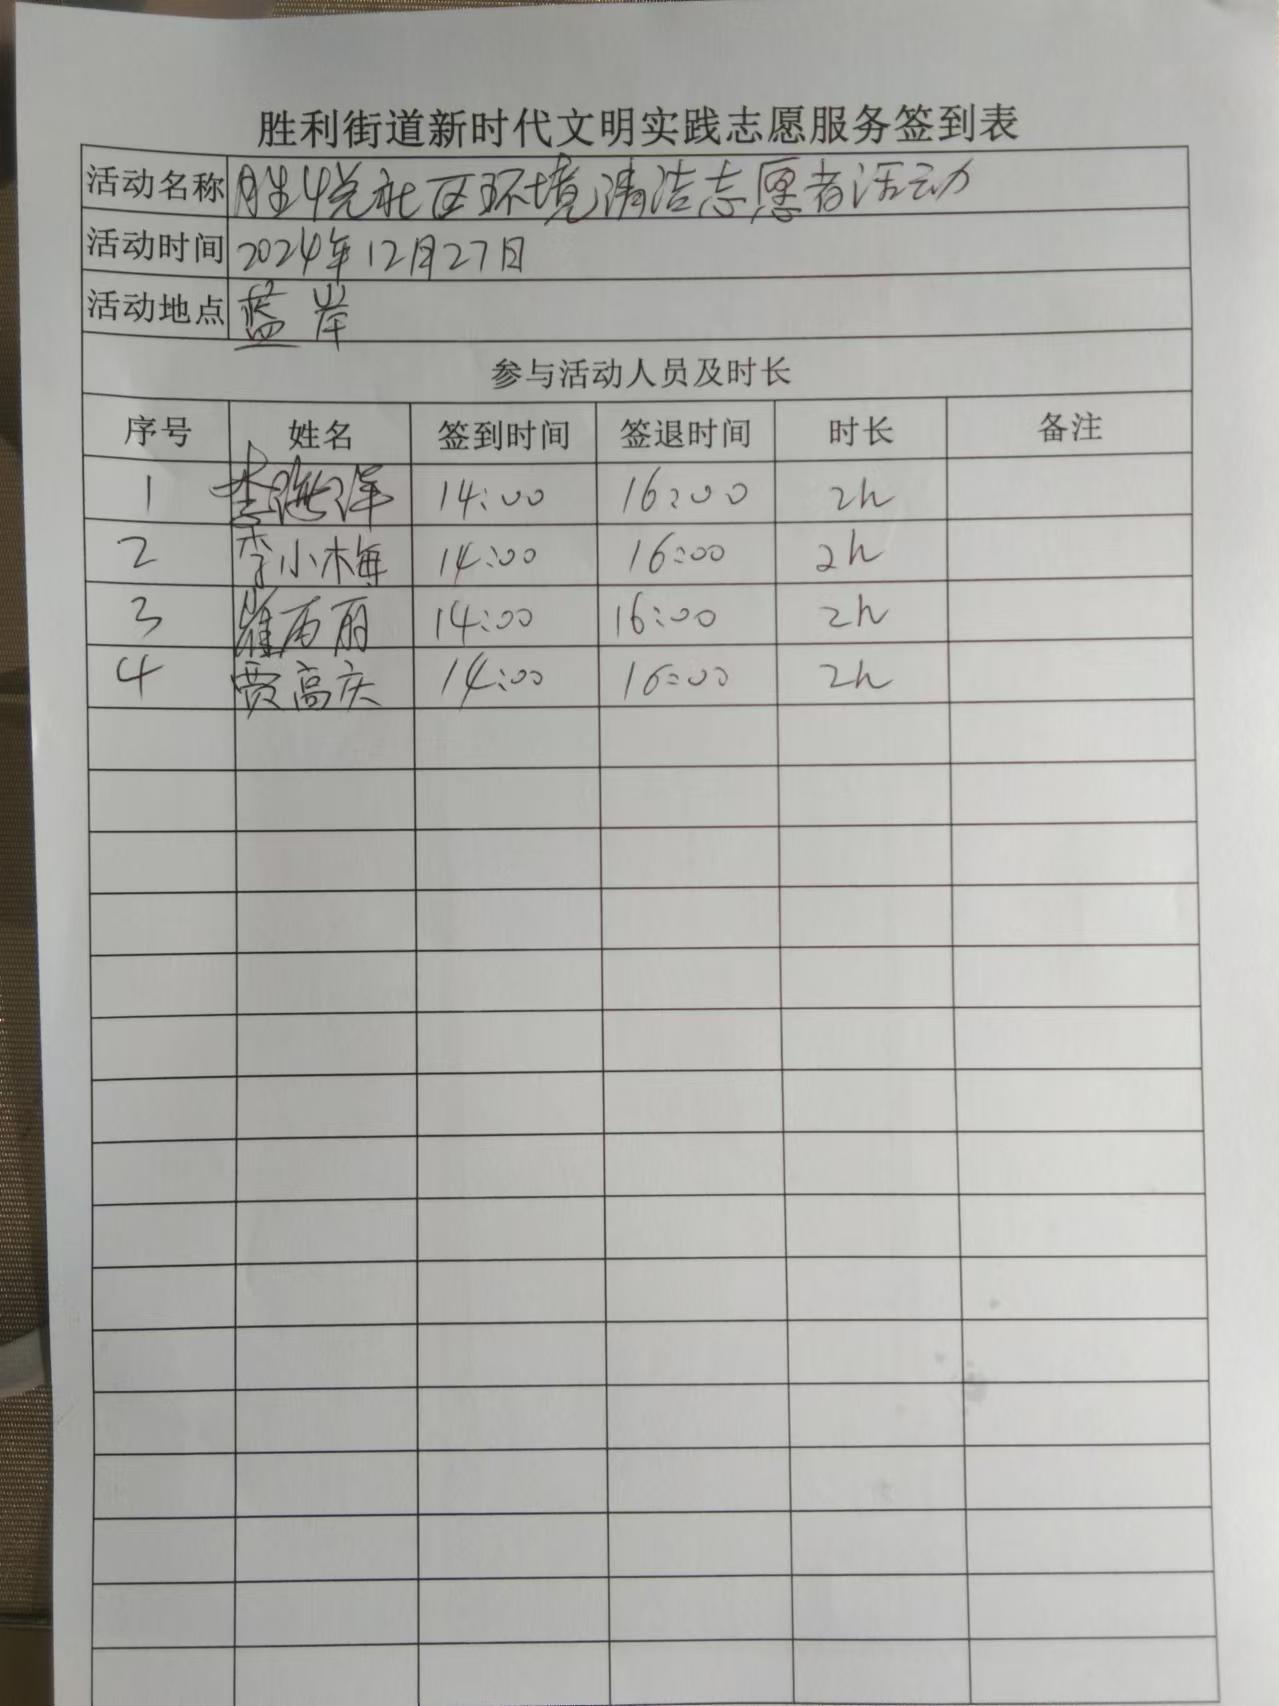 胜利街道新时代文明实践志愿服务签到表
活动名称 胜悦社区环境清洁志愿者活动
活动时间 2024年12月27日
活动地点 蓝岸
参与活动人员及时长
序号 姓名 签到时间 签退时间 时长 备注
1 李海洋 14:00 16:00 2h
2 李小梅 14:00 16:00 2h
3 丽 14:00 16:00 2h
4 贾高庆 14:00 16:00 2h